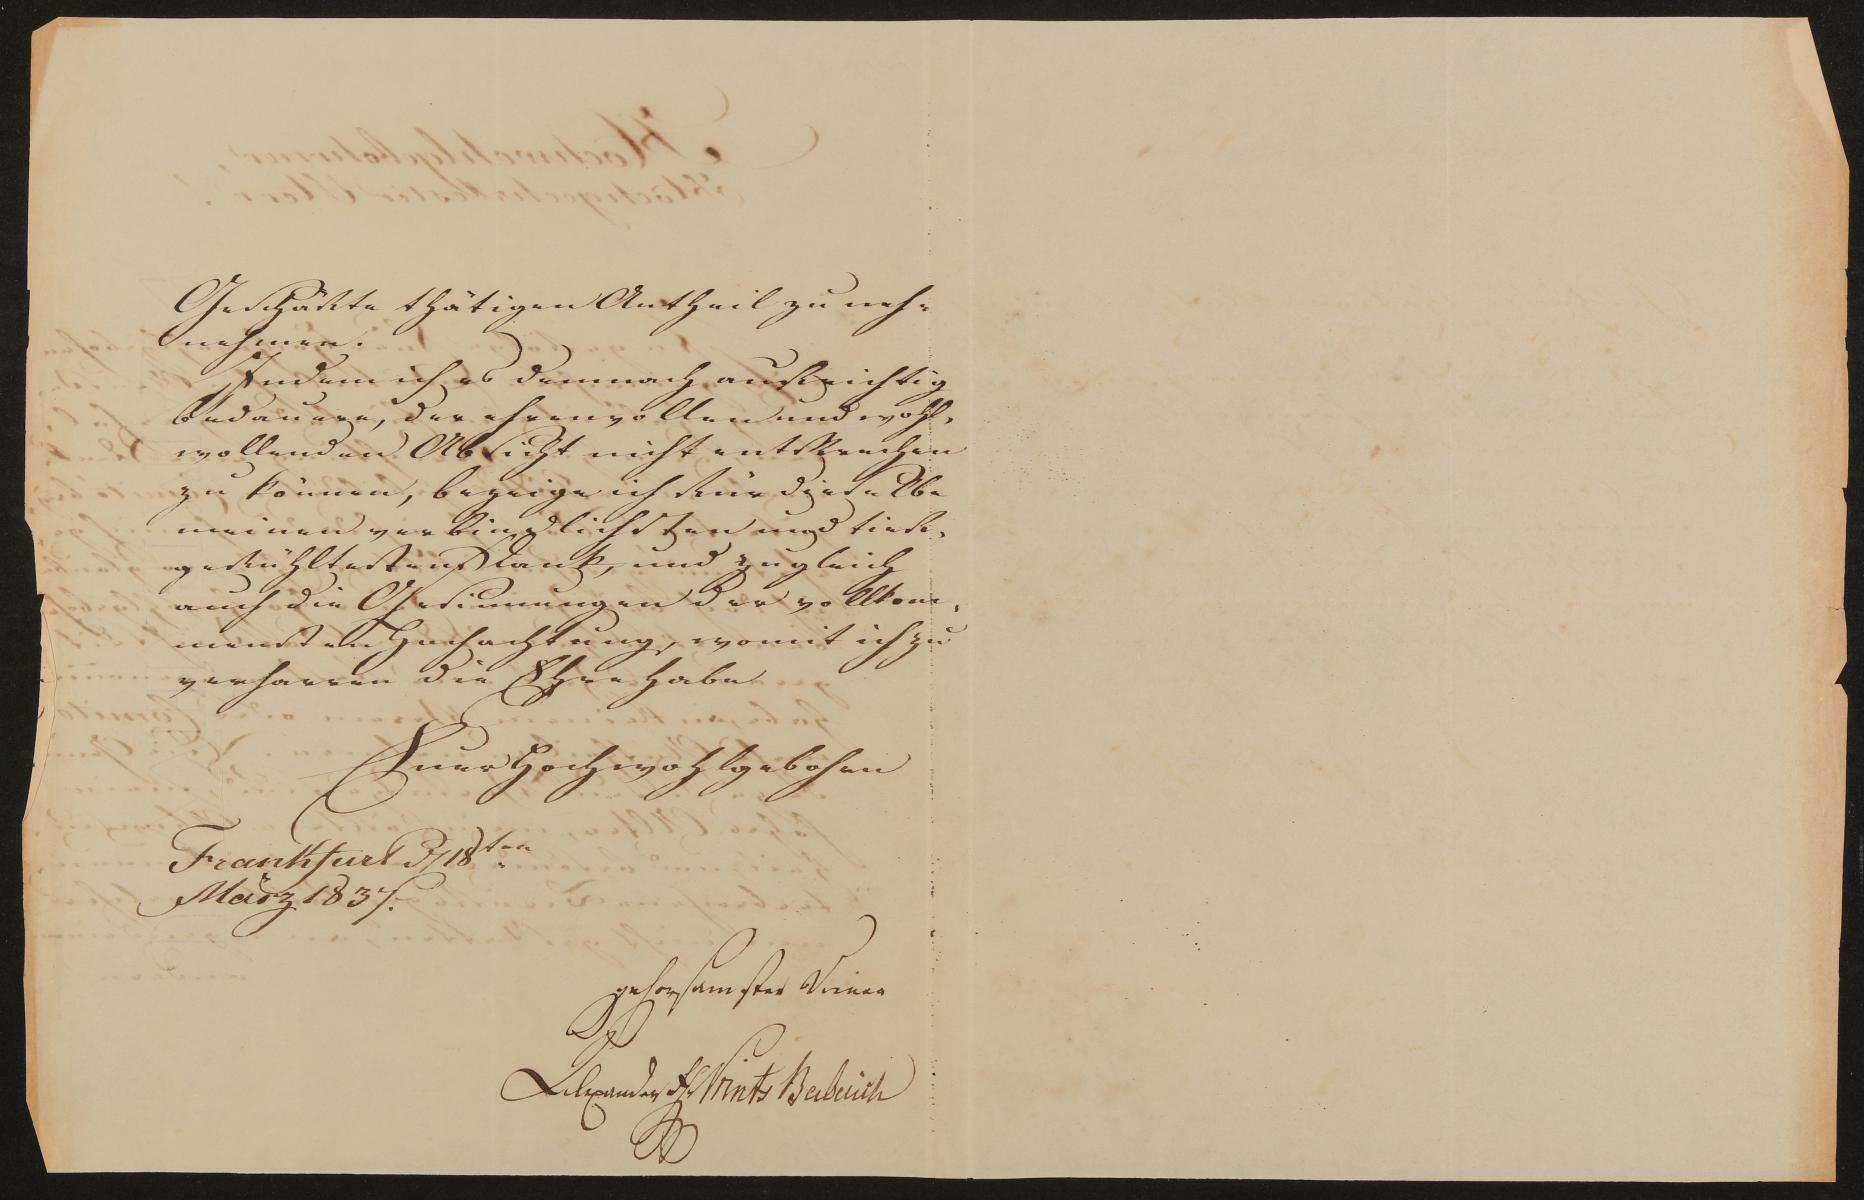 Geschäfte thätigen Antheil zu neh-
nehmen.
Indem ich es demnach aufrichtig
bedauere, der ehrenvollen und wohl-
wollenden Absicht nicht entsprechen
zu können, bezeige ich für dieselbe
meinen verbindlichsten und tief-
gefühltesten Dank, und zugleich
auch die Gesinnungen der vollkom-
mensten Hochachtung, womit ich zu
verharren die Ehre habe
Euer Hochwohlgebohren
Frankfurt d 18ten
März 1837.
gehorsamster Diener
Alexander Vrints Berberich